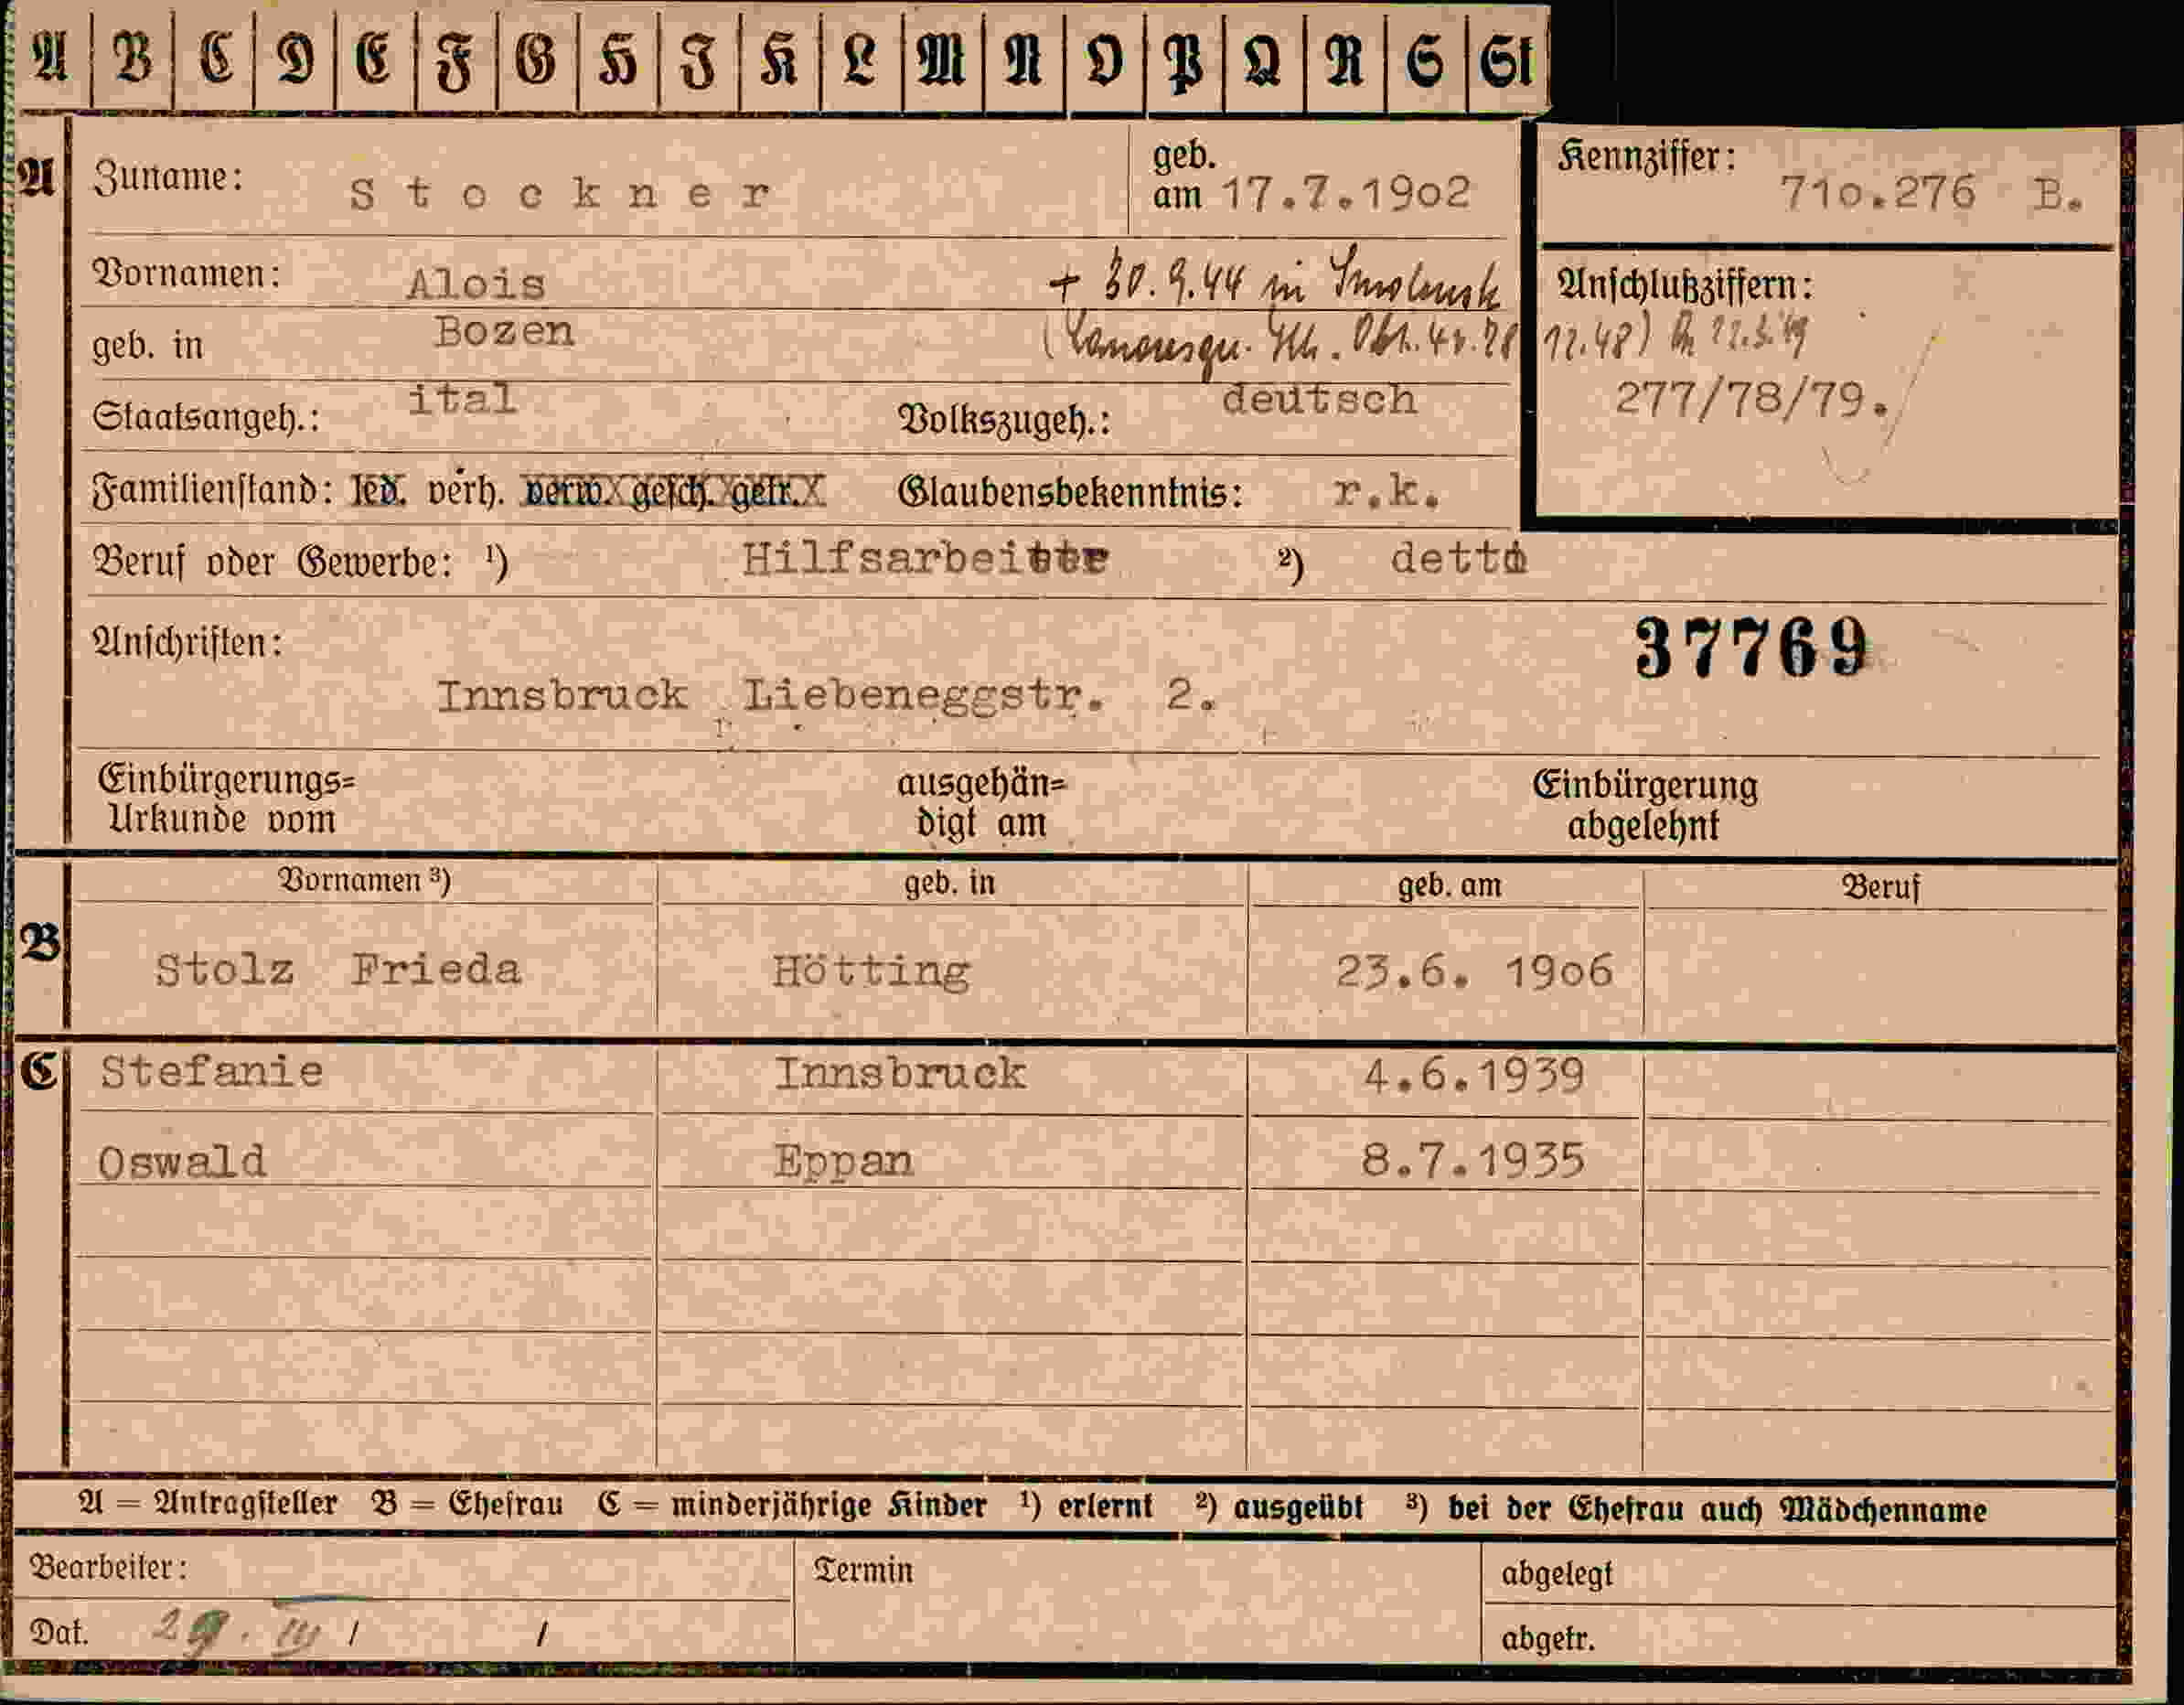 A B C D E F G H J K L M N O P Q R S St
A Zuname: Stockner geb. am 17.7.1902 Kennziffer: 710.276 B.
Vornamen: Alois + 30.9.44 in Smolensk Anschlußziffern:
geb. in Bozen 12.48) 22.3.49
Staatsangeh.: ital Volkszugeh.: deutsch 277/78/79.
Familienstand: led. verh. verw. gesch. getr. Glaubensbekenntnis: r.k.
Beruf oder Gewerbe: ¹) Hilfsarbeiter ²) detto
Anschriften: 37769
Innsbruck Liebeneggstr. 2.
Einbürgerungs= ausgehän= Einbürgerung
Urkunde vom digt am abgelehnt
Vornamen ³) geb. in geb. am Beruf
B Stolz Frieda Hötting 23.6. 1906
C Stefanie Innsbruck 4.6.1939
Oswald Eppan 8.7.1935
A = Antragsteller B = Ehefrau C = minderjährige Kinder ¹) erlernt ²) ausgeübt ³) bei der Ehefrau auch Mädchenname
Bearbeiter: Termin abgelegt
Dat. / / abgetr.